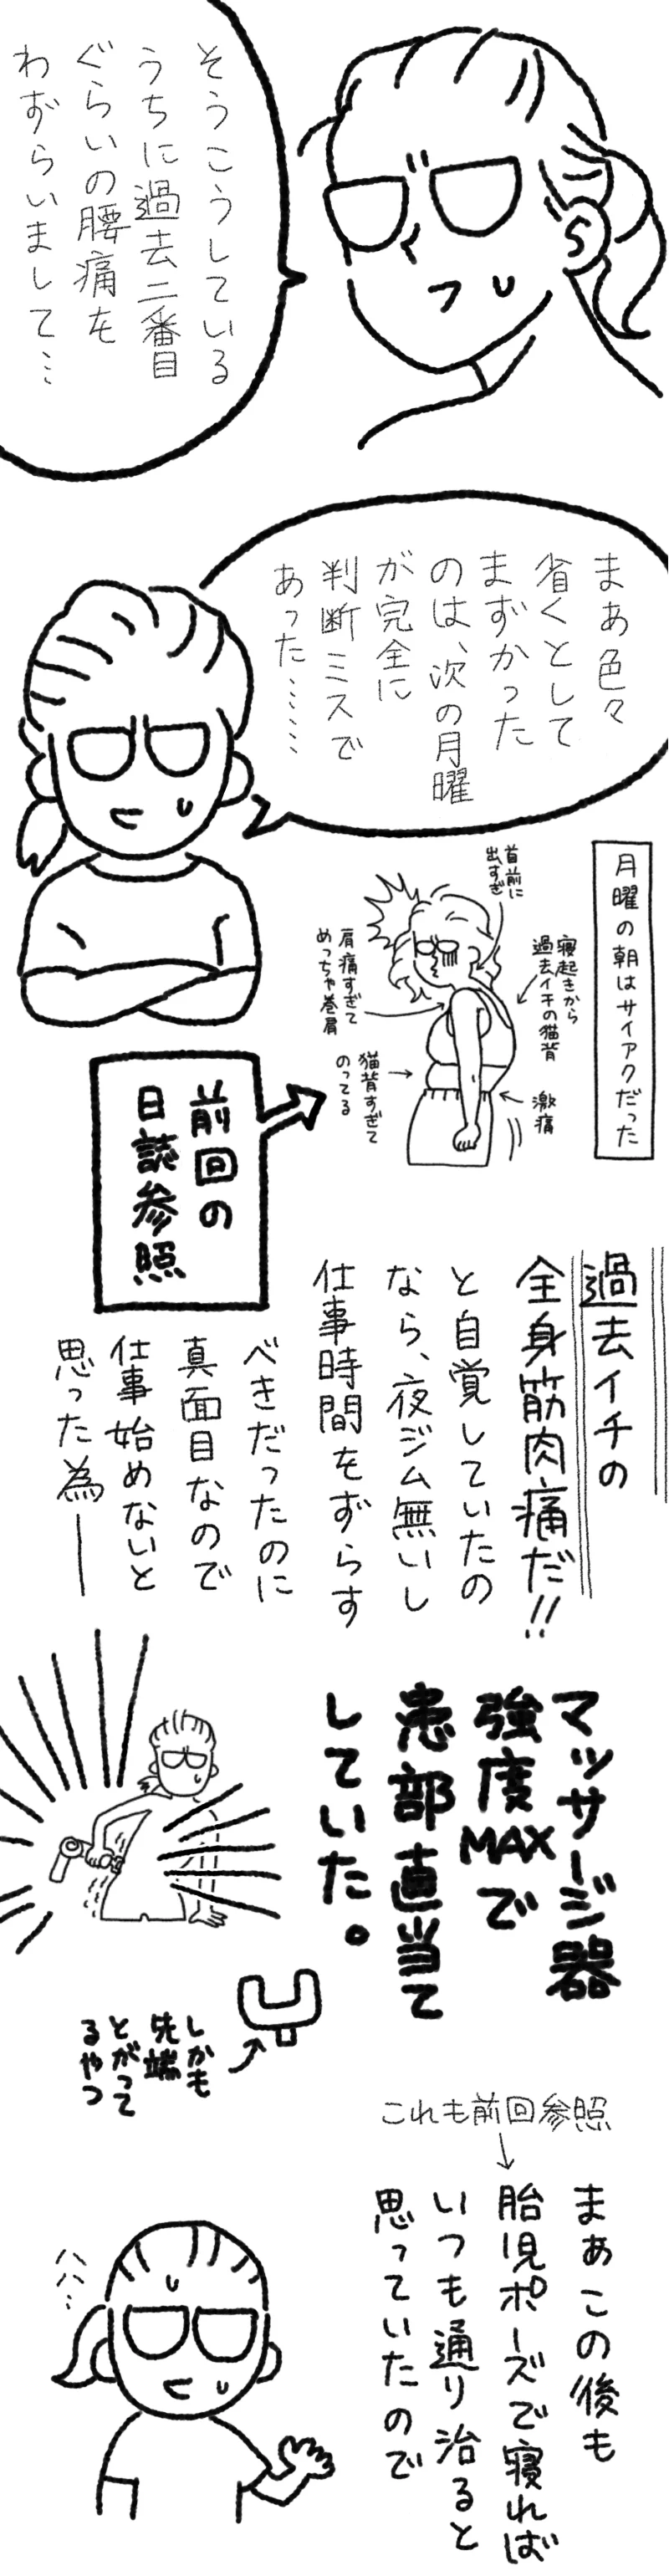 そうこうしている
うちに過去二番目
ぐらいの腰痛を
わずらいまして…
まあ色々
省くとして
まずかった
のは、次の月曜
が完全に
判断ミスで
あった……
月曜の朝はサイアクだった
首前に
出すぎ
寝起きから
過去イチの猫背
肩痛すぎて
めっちゃ巻肩
猫背すぎて
のってる
激痛
前回の
日誌参照
過去イチの
全身筋肉痛だ!!
と自覚していたの
なら、夜ジム無いし
仕事時間をずらす
べきだったのに
真面目なので
仕事始めないと
思った為――
マッサージ器
強度MAXで
患部直当て
していた。
しかも
先端
とがって
るやつ
これも前回参照
まぁこの後も
胎児ポーズで寝れば
いつも通り治ると
思っていたので
ハハ…